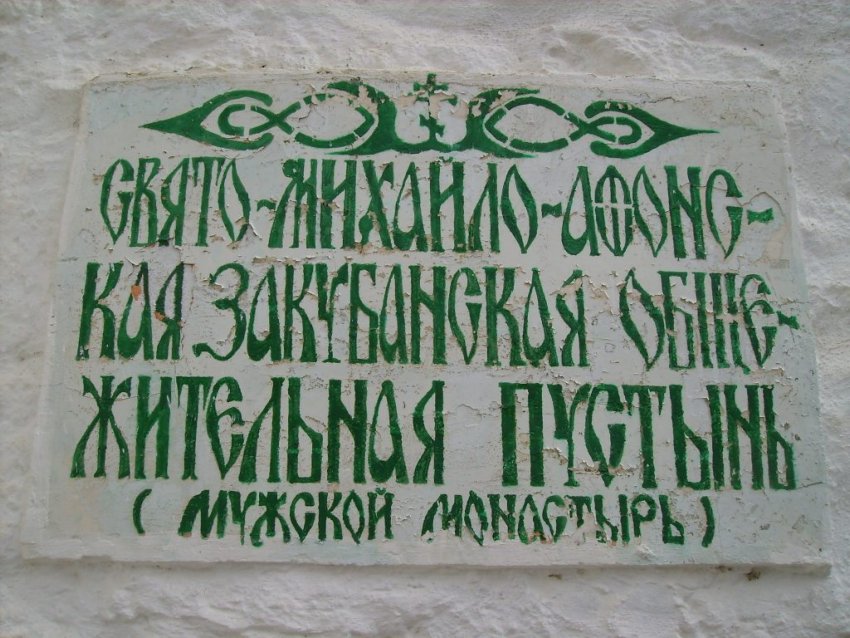 СВЯТО-МИХАЙЛО-АФОНС-
КАЯ ЗАКУБАНСКАЯ ОБЩЕ-
ЖИТЕЛЬНАЯ ПУСТЫНЬ
(МУЖСКОЙ МОНАСТЫРЬ)